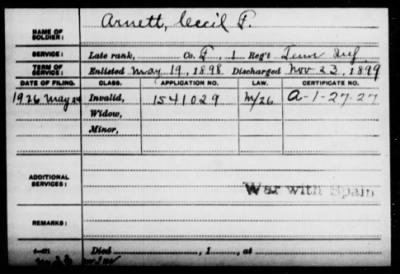 NAME OF SOLDIER: Arnett, Cecil P.
SERVICE: Late rank, Co. F, 1 Reg't Tenn Inf.
TERM OF SERVICE: Enlisted May 19, 1898 Discharged Nov 23, 1899
DATE OF FILING. CLASS. APPLICATION NO. LAW. CERTIFICATE NO.
1926 May Invalid, 1541029 A-1-27-27
Widow,
Minor,
ADDITIONAL SERVICES: War with Spain
REMARKS:
Died , 1 , at